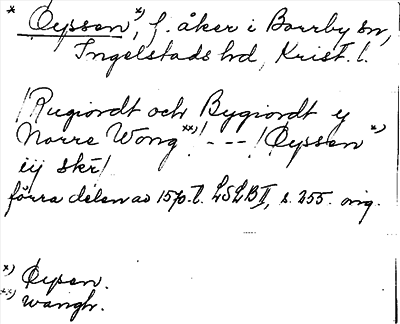 * Öyssen*), f. åker i Borrby sn,
Ingelstads hd, Krist. l.
/Rugiordt och Bygiordt ij
Norre Wong**)/ --- /Öyssen*)
iij skr/
förra delen av 1570-t. LSLB II, s. 255. orig.
*) Öysen.
**) wangh.